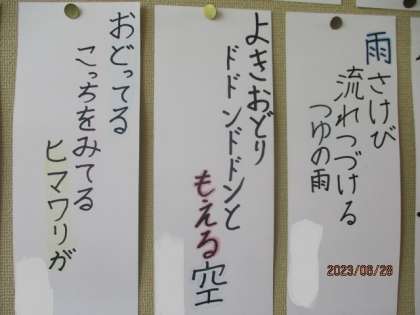 雨さけび
流れつづける
つゆの雨
よきおどり
ドドンドドンと
もえる空
おどってる
こっちをみてる
ヒマワリが
2023/06/28